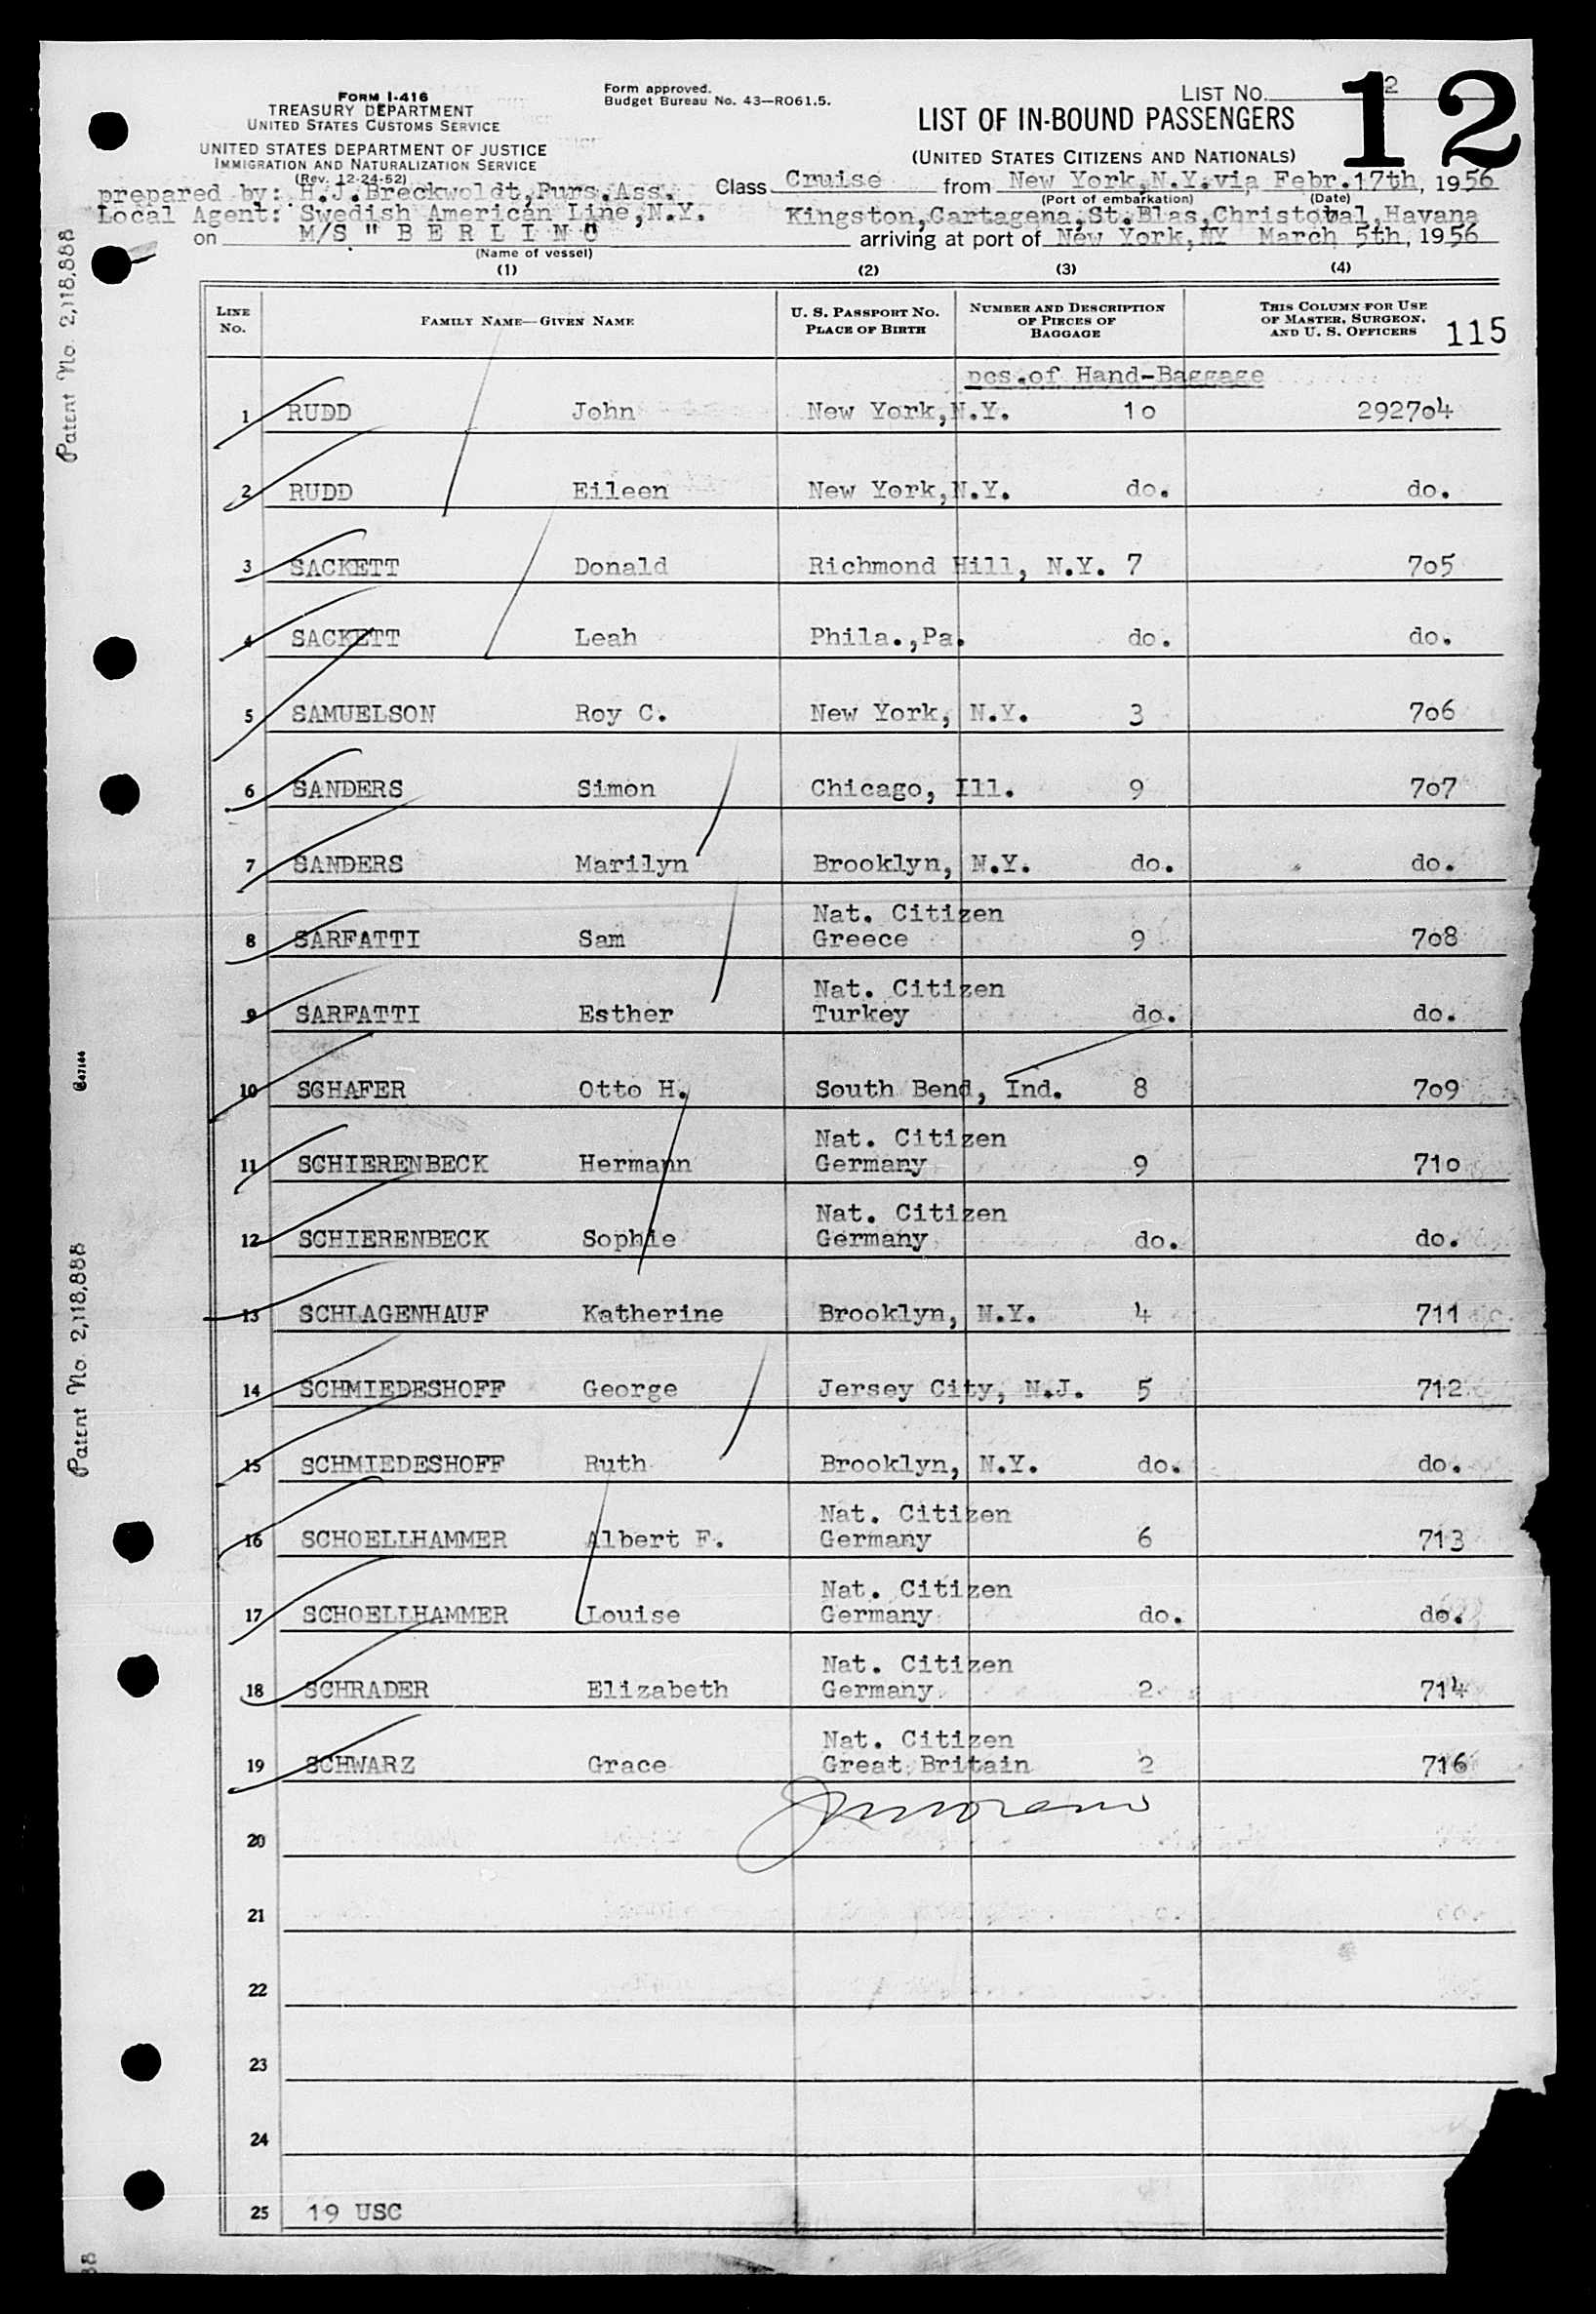 FORM I-416
TREASURY DEPARTMENT
UNITED STATES CUSTOMS SERVICE
UNITED STATES DEPARTMENT OF JUSTICE
IMMIGRATION AND NATURALIZATION SERVICE
(Rev. 12-24-52)
Form approved.
Budget Bureau No. 43—RO61.5.
LIST NO. 2
12
LIST OF IN-BOUND PASSENGERS
(UNITED STATES CITIZENS AND NATIONALS)
prepared by: H.J.Breckwoldt,Purs.Ass.
Class Cruise from New York,N.Y.via Febr.17th, 1956
(Port of embarkation) (Date)
Local Agent: Swedish American Line,N.Y.
Kingston,Cartagena,St.Blas,Christobal,Havana
on M/S "BERLIN"
arriving at port of New York,NY March 5th, 1956
(Name of vessel)
(1) (2) (3) (4)
LINE NO. FAMILY NAME—GIVEN NAME U. S. PASSPORT NO. PLACE OF BIRTH NUMBER AND DESCRIPTION OF PIECES OF BAGGAGE THIS COLUMN FOR USE OF MASTER, SURGEON, AND U. S. OFFICERS 115
pcs.of Hand-Baggage
1 RUDD John New York,N.Y. 10 292704
2 RUDD Eileen New York,N.Y. do. do.
3 SACKETT Donald Richmond Hill, N.Y. 7 705
4 SACKETT Leah Phila.,Pa. do. do.
5 SAMUELSON Roy C. New York, N.Y. 3 706
6 SANDERS Simon Chicago, Ill. 9 707
7 SANDERS Marilyn Brooklyn, N.Y. do. do.
Nat. Citizen
8 SARFATTI Sam Greece 9 708
Nat. Citizen
9 SARFATTI Esther Turkey do. do.
10 SCHAFER Otto H. South Bend, Ind. 8 709
Nat. Citizen
11 SCHIERENBECK Hermann Germany 9 710
Nat. Citizen
12 SCHIERENBECK Sophie Germany do. do.
13 SCHLAGENHAUF Katherine Brooklyn, N.Y. 4 711
14 SCHMIEDESHOFF George Jersey City, N.J. 5 712
15 SCHMIEDESHOFF Ruth Brooklyn, N.Y. do. do.
Nat. Citizen
16 SCHOELLHAMMER Albert F. Germany 6 713
Nat. Citizen
17 SCHOELLHAMMER Louise Germany do. do.
Nat. Citizen
18 SCHRADER Elizabeth Germany 2 714
Nat. Citizen
19 SCHWARZ Grace Great Britain 2 716
20
21
22
23
24
25 19 USC
Patent No. 2,118,888
Patent No. 2,118,888